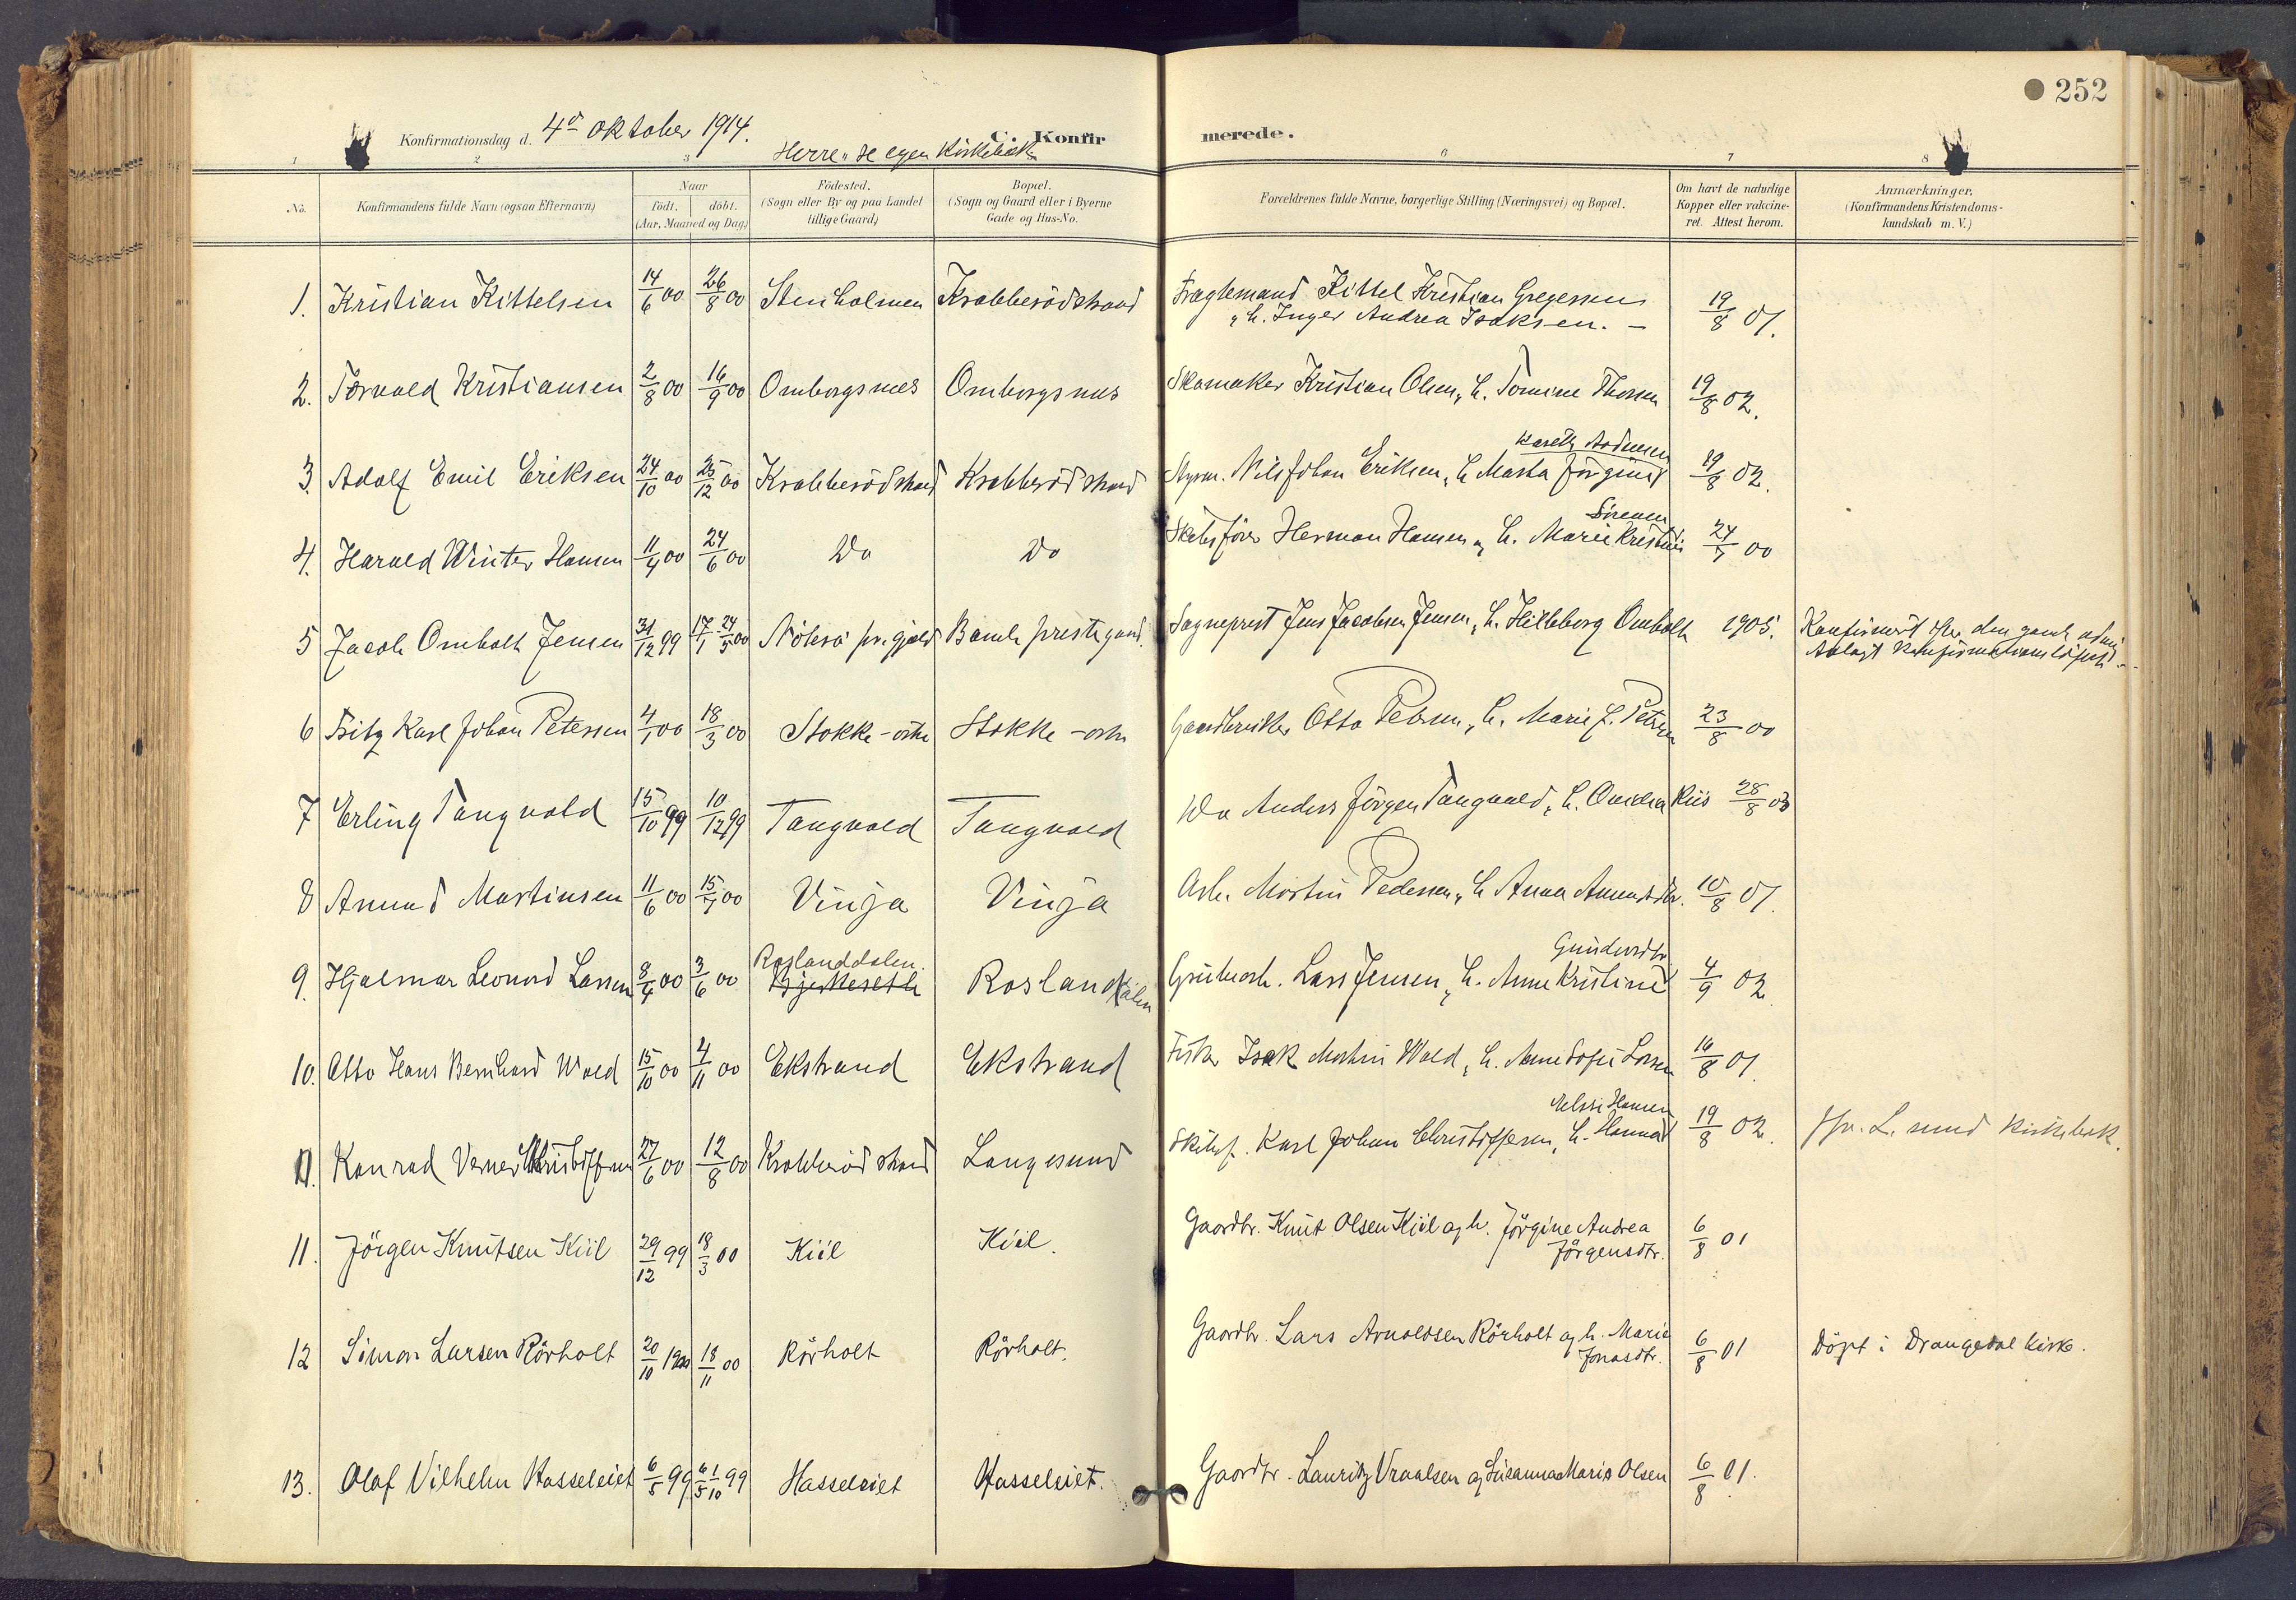 252
Konfirmationsdag d. 4de oktober 1914.
C. Konfirmerede.
Herre, se egen Kirkebok
1 2 3 6 7 8
No.
Konfirmandens fulde Navn (ogsaa Efternavn)
Naar
födt. döbt.
(Aar, Maaned og Dag)
Födested.
(Sogn eller By og paa Landet
tillige Gaard)
Bopæl.
(Sogn og Gaard eller i Byerne
Gade og Hus-No.
Forældrenes fulde Navne, borgerlige Stilling (Næringsvei) og Bopæl.
Om havt de naturlige
Kopper eller vakcine-
ret. Attest herom.
Anmærkninger.
(Konfirmandens Kristendoms-
kundskab m. V.)
1. Kristian Kittelsen 14/6 00 26/8 00 Stenholmen Krabberödstrand Fragtemand Kittel Kristian Gregersen 19/8 01.
, h. Inger Andrea Isaksen. –
2. Torvald Kristiansen 2/8 00 16/9 00 Omborgsnes Omborgsnes Skomaker Kristian Olsen, h. Tomine Thorsen 19/8 02.
3. Adolf Emil Eriksen 24/10 00 25/12 00 Krabberödstrand Krabberöd strand Styrm. Nils Johan Eriksen, h Marta Jörgine 19/8 02.
4. Harald Winter Hansen 11/4 00 24/6 00 Do Do Skibsförer Herman Hansen og h. Marie Kristine Sörensen 24/7 00
5 Jacob Ombolt Jensen 31/12 99 17/1 24/5 00 Nöterö pr.gjeld Bamle prestegaard. Sogneprest Jens Jacobsen Jensen, h. Hilleborg Ombolt 1905. Konfirmert efter den gamle
Avlagt konfirmationslöfte.
6 Fritz Karl Johan Petersen 4/1 00 18/3 00 Stokke-östre Stokke-östre Gaardbruker Otto Petersen, h. Marie J. Petersen 23/8 00
7 Erling Tangvald 15/10 99 10/12 99 Tangvald Tangvald Do Anders Jörgen Tangvald, h. Ovidia Riis 28/8 03
8 Amund Martinsen 11/6 00 15/7 00 Vinja Vinja Arb. Martin Pedersen, h Anna Amundsdtr. 10/8 01.
9. Hjalmar Leonard Larsen 8/4 00 3/6 00 Roslanddalen Roslanddalen Grubearb. Lars Jensen, h. Anne Kristine Gundersdtr 4/9 02
10. Otto Hans Bernhard Wold 15/10 00 4/11 00 Ekstrand Ekstrand Fisker Isak Martin Wold, h. Anne Sofie Larsen 16/8 01.
Konrad Verner Kristoffersen 27/6 00 12/8 00 Krabberöd strand Langesund Skibsf. Karl Johan Christoffersen, h. Hanna Hansen 19/8 02. L. sund kirkebok.
11. Jörgen Knutsen Kiil 29/12 99 18/3 00 Kiil Kiil. Gaardbr. Knut Olsen Kiil og h. Jörgine Andrea 6/8 01
Jörgensdtr.
12 Simon Larsen Rörholt 20/10 1900 18/11 00 Rörholt Rörholt. Gaardbr. Lars Arnoldsen Rörholt og h. Marie 6/8 01 Döpt i Drangedal kirke.
Jonasdtr.
13. Olaf Vilhelm Hasseleiet 6/5 99 6/5 1/10 99 Hasseleiet Hasseleiet. Gaardbr. Lauritz Vraalsen og Susanna Marie Olsen 6/8 01.